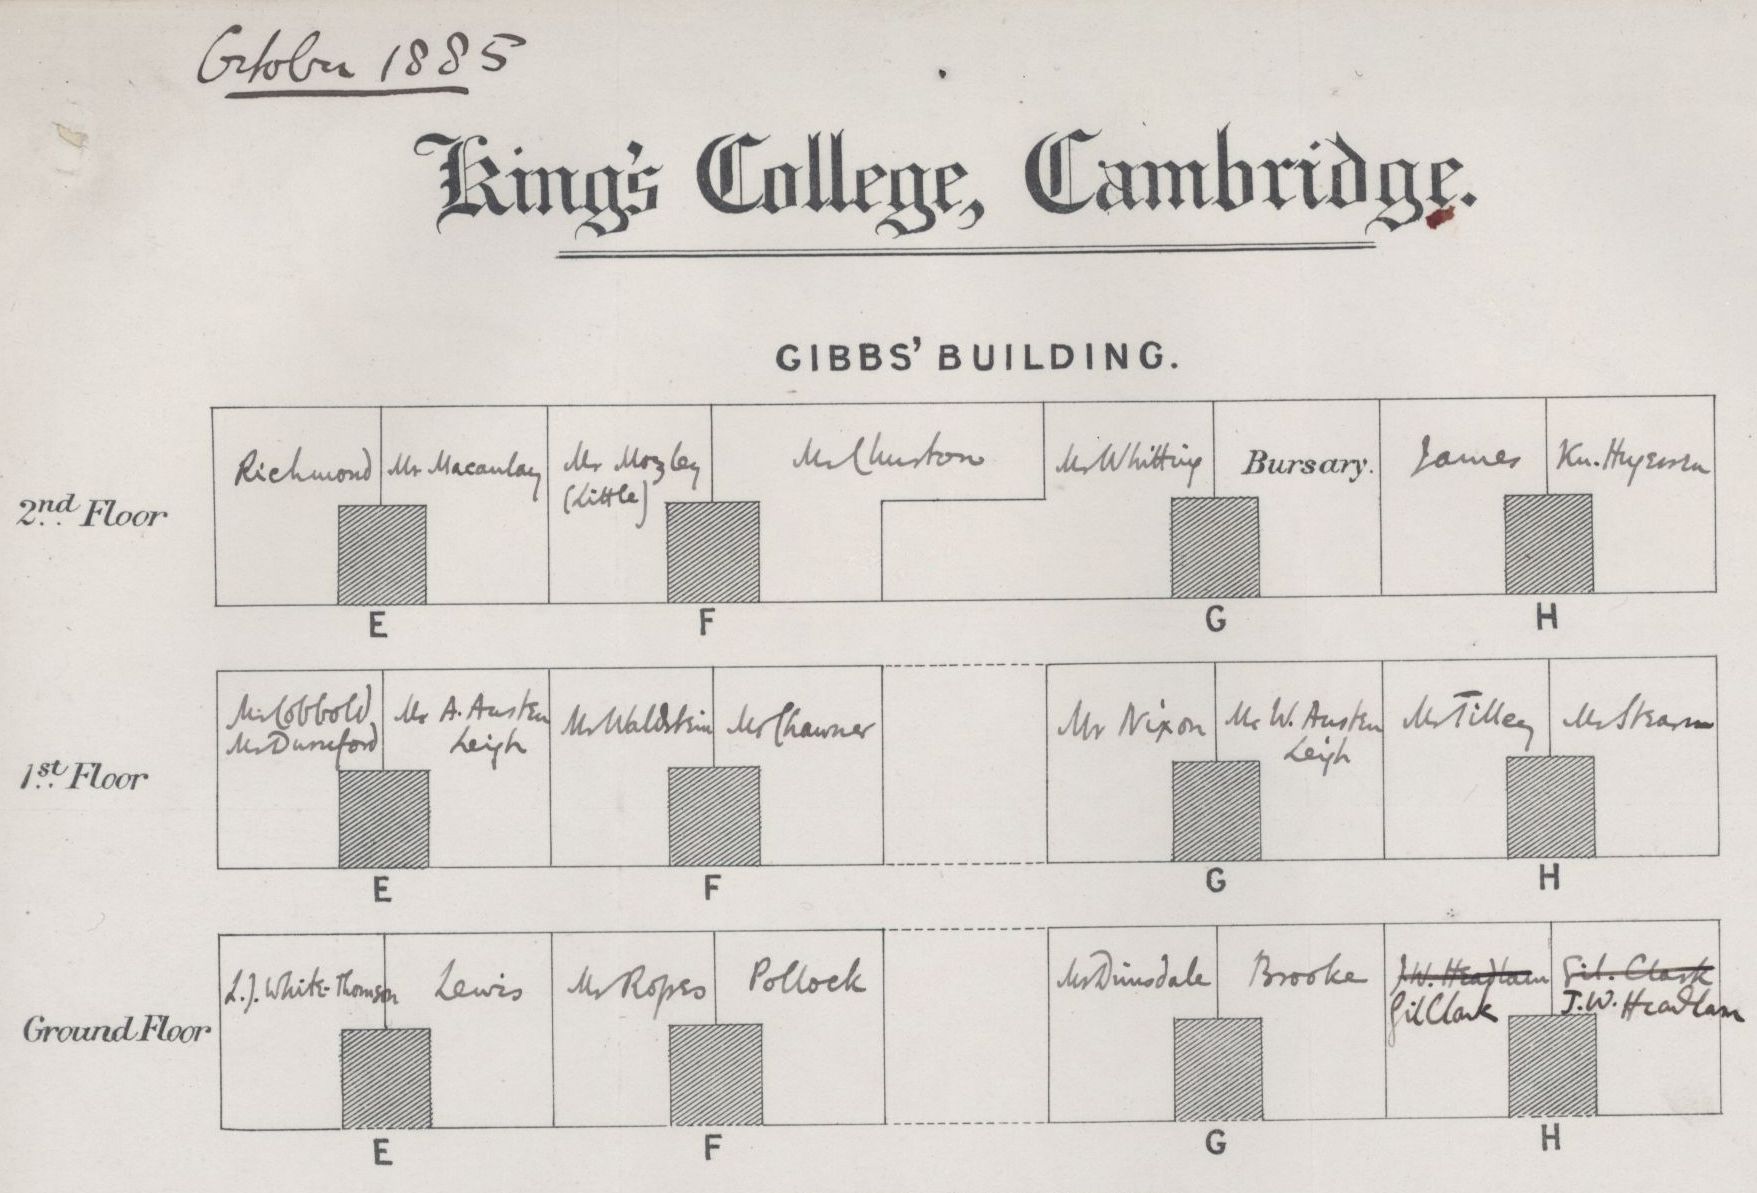 October 1885
King's College, Cambridge.
GIBBS' BUILDING.
2nd Floor
Richmond
Mr Macaulay
Mr Mozley
(Little)
Mr Churton
Mr Whitting
Bursary.
James
Kn. Hugessen
E F G H
1st Floor
Mr Cobbold
Mr Durnford
Mr A. Austen
Leigh
Mr Waldstein
Mr Chawner
Mr Nixon
Mr W. Austen
Leigh
Mr Tilley
Mr Stearn
E F G H
Ground Floor
L.J. White-Thomson
Lewis
Mr Ropes
Pollock
Mr Dimsdale
Brooke
J.W. Headlam
Gil Clark
Gil. Clark
J.W. Headlam
E F G H